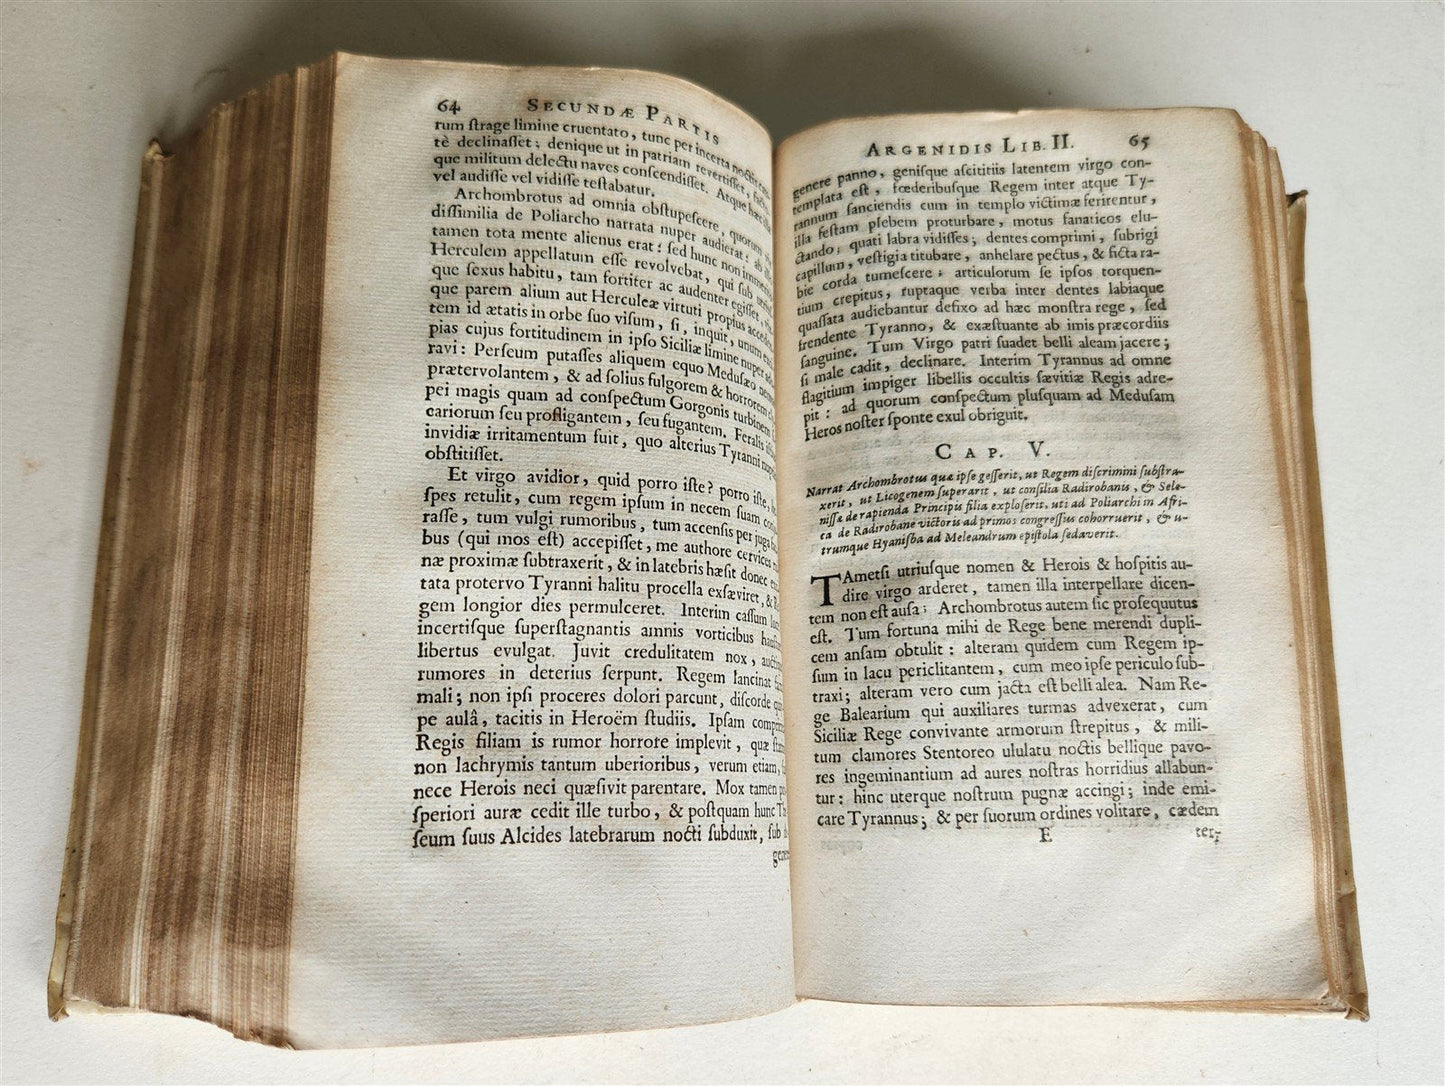 64 SECUNDÆ PARTIS
rum ſtrage limine cruentato, tunc per incerta noctis
tè declinaſſet; denique ut in patriam revertiſſet,
que militum delectu naves conſcendiſſet. Atque hæc
vel audiſſe vel vidiſſe teſtabatur.
Archombrotus ad omnia obſtupeſcere, quorum
diſſimilia de Poliarcho narrata nuper audierat: ab
tamen tota mente alienus erat: ſed hunc non
Herculem appellatum eſſe revolvebat, qui ſub
que ſexus habitu, tam fortiter ac audenter egiſſet,
que parem alium aut Herculeæ virtuti propius
tem id ætatis in orbe ſuo viſum, ſi, inquit, unum
pias cujus fortitudinem in ipſo Siciliæ limine nuper
ravi: Perſeum putaſſes aliquem equo Meduſæo
prætervolantem, & ad ſolius fulgorem & horrorem
pei magis quam ad conſpectum Gorgonis turbinem
cariorum ſeu profligantem, ſeu fugantem. Feralis
invidiæ irritamentum fuit, quo alterius Tyranni
obſtitiſſet.
Et virgo avidior, quid porro iſte? porro iſte,
ſpes retulit, cum regem ipſum in necem ſuam
raſſe, tum vulgi rumoribus, tum accenſis per juga
bus (qui mos eſt) accepiſſet, me authore cervices
næ proximæ ſubtraxerit, & in latebris hæſit donec
tata protervo Tyranni halitu procella exſæviret, &
gem longior dies permulceret. Interim caſſum
incertiſque ſuperſtagnantis amnis vorticibus
libertus evulgat. Juvit credulitatem nox,
rumores in deterius ſerpunt. Regem lancinat
mali; non ipſi proceres dolori parcunt, diſcorde
pe aulâ, tacitis in Heroëm ſtudiis. Ipſam
Regis filiam is rumor horrore implevit, quæ
non lachrymis tantum uberioribus, verum etiam,
nece Herois neci quæſivit parentare. Mox tamen
ſperiori auræ cedit ille turbo, & poſtquam hunc
ſeum ſuus Alcides latebrarum nocti ſubduxit, ſub
ARGENIDIS LIB. II. 65
genere panno, geniſque aſcititiis latentem virgo con-
templata eſt, fœderibuſque Regem inter atque Ty-
rannum ſanciendis cum in templo victimæ ferirentur,
illa feſtam plebem proturbare, motus fanaticos elu-
ctando, quati labra vidiſſes; dentes comprimi, ſubrigi
capillum, veſtigia titubare, anhelare pectus, & ficta ra-
bie corda tumeſcere: articulorum ſe ipſos torquen-
tium crepitus, ruptaque verba inter dentes labiaque
quaſſata audiebantur defixo ad hæc monſtra rege, ſed
frendente Tyranno, & exæſtuante ab imis præcordiis
ſanguine. Tum Virgo patri ſuadet belli aleam jacere;
ſi male cadit, declinare. Interim Tyrannus ad omne
flagitium impiger libellis occultis ſævitiæ Regis adre-
pit: ad quorum conſpectum pluſquam ad Meduſam
Heros noſter ſponte exul obriguit.
CAP. V.
Narrat Archombrotus quæ ipſe geſſerit, ut Regem diſcrimini ſubſtra-
xerit, ut Licogenem ſuperarit, ut conſilia Radirobanis, & Sele-
niſſæ de rapienda Principis filia exploſerit, uti ad Poliarchi in Afri-
ca de Radirobane victoris ad primos congreſſus cohorruerit, & u-
trumque Hyaniſba ad Meleandrum epiſtola ſedaverit.
TAmetſi utriuſque nomen & Herois & hoſpitis au-
dire virgo arderet, tamen illa interpellare dicen-
tem non eſt auſa; Archombrotus autem ſic proſequutus
eſt. Tum fortuna mihi de Rege bene merendi dupli-
cem anſam obtulit: alteram quidem cum Regem ip-
ſum in lacu periclitantem, cum meo ipſe periculo ſub-
traxi; alteram vero cum jacta eſt belli alea. Nam Re-
ge Balearium qui auxiliares turmas advexerat, cum
Siciliæ Rege convivante armorum ſtrepitus, & mili-
tum clamores Stentoreo ululatu noctis bellique pavo-
res ingeminantium ad aures noſtras horridius allabun-
tur: hinc uterque noſtrum pugnæ accingi; inde emi-
care Tyrannus; & per ſuorum ordines volitare, cædem
E ter-